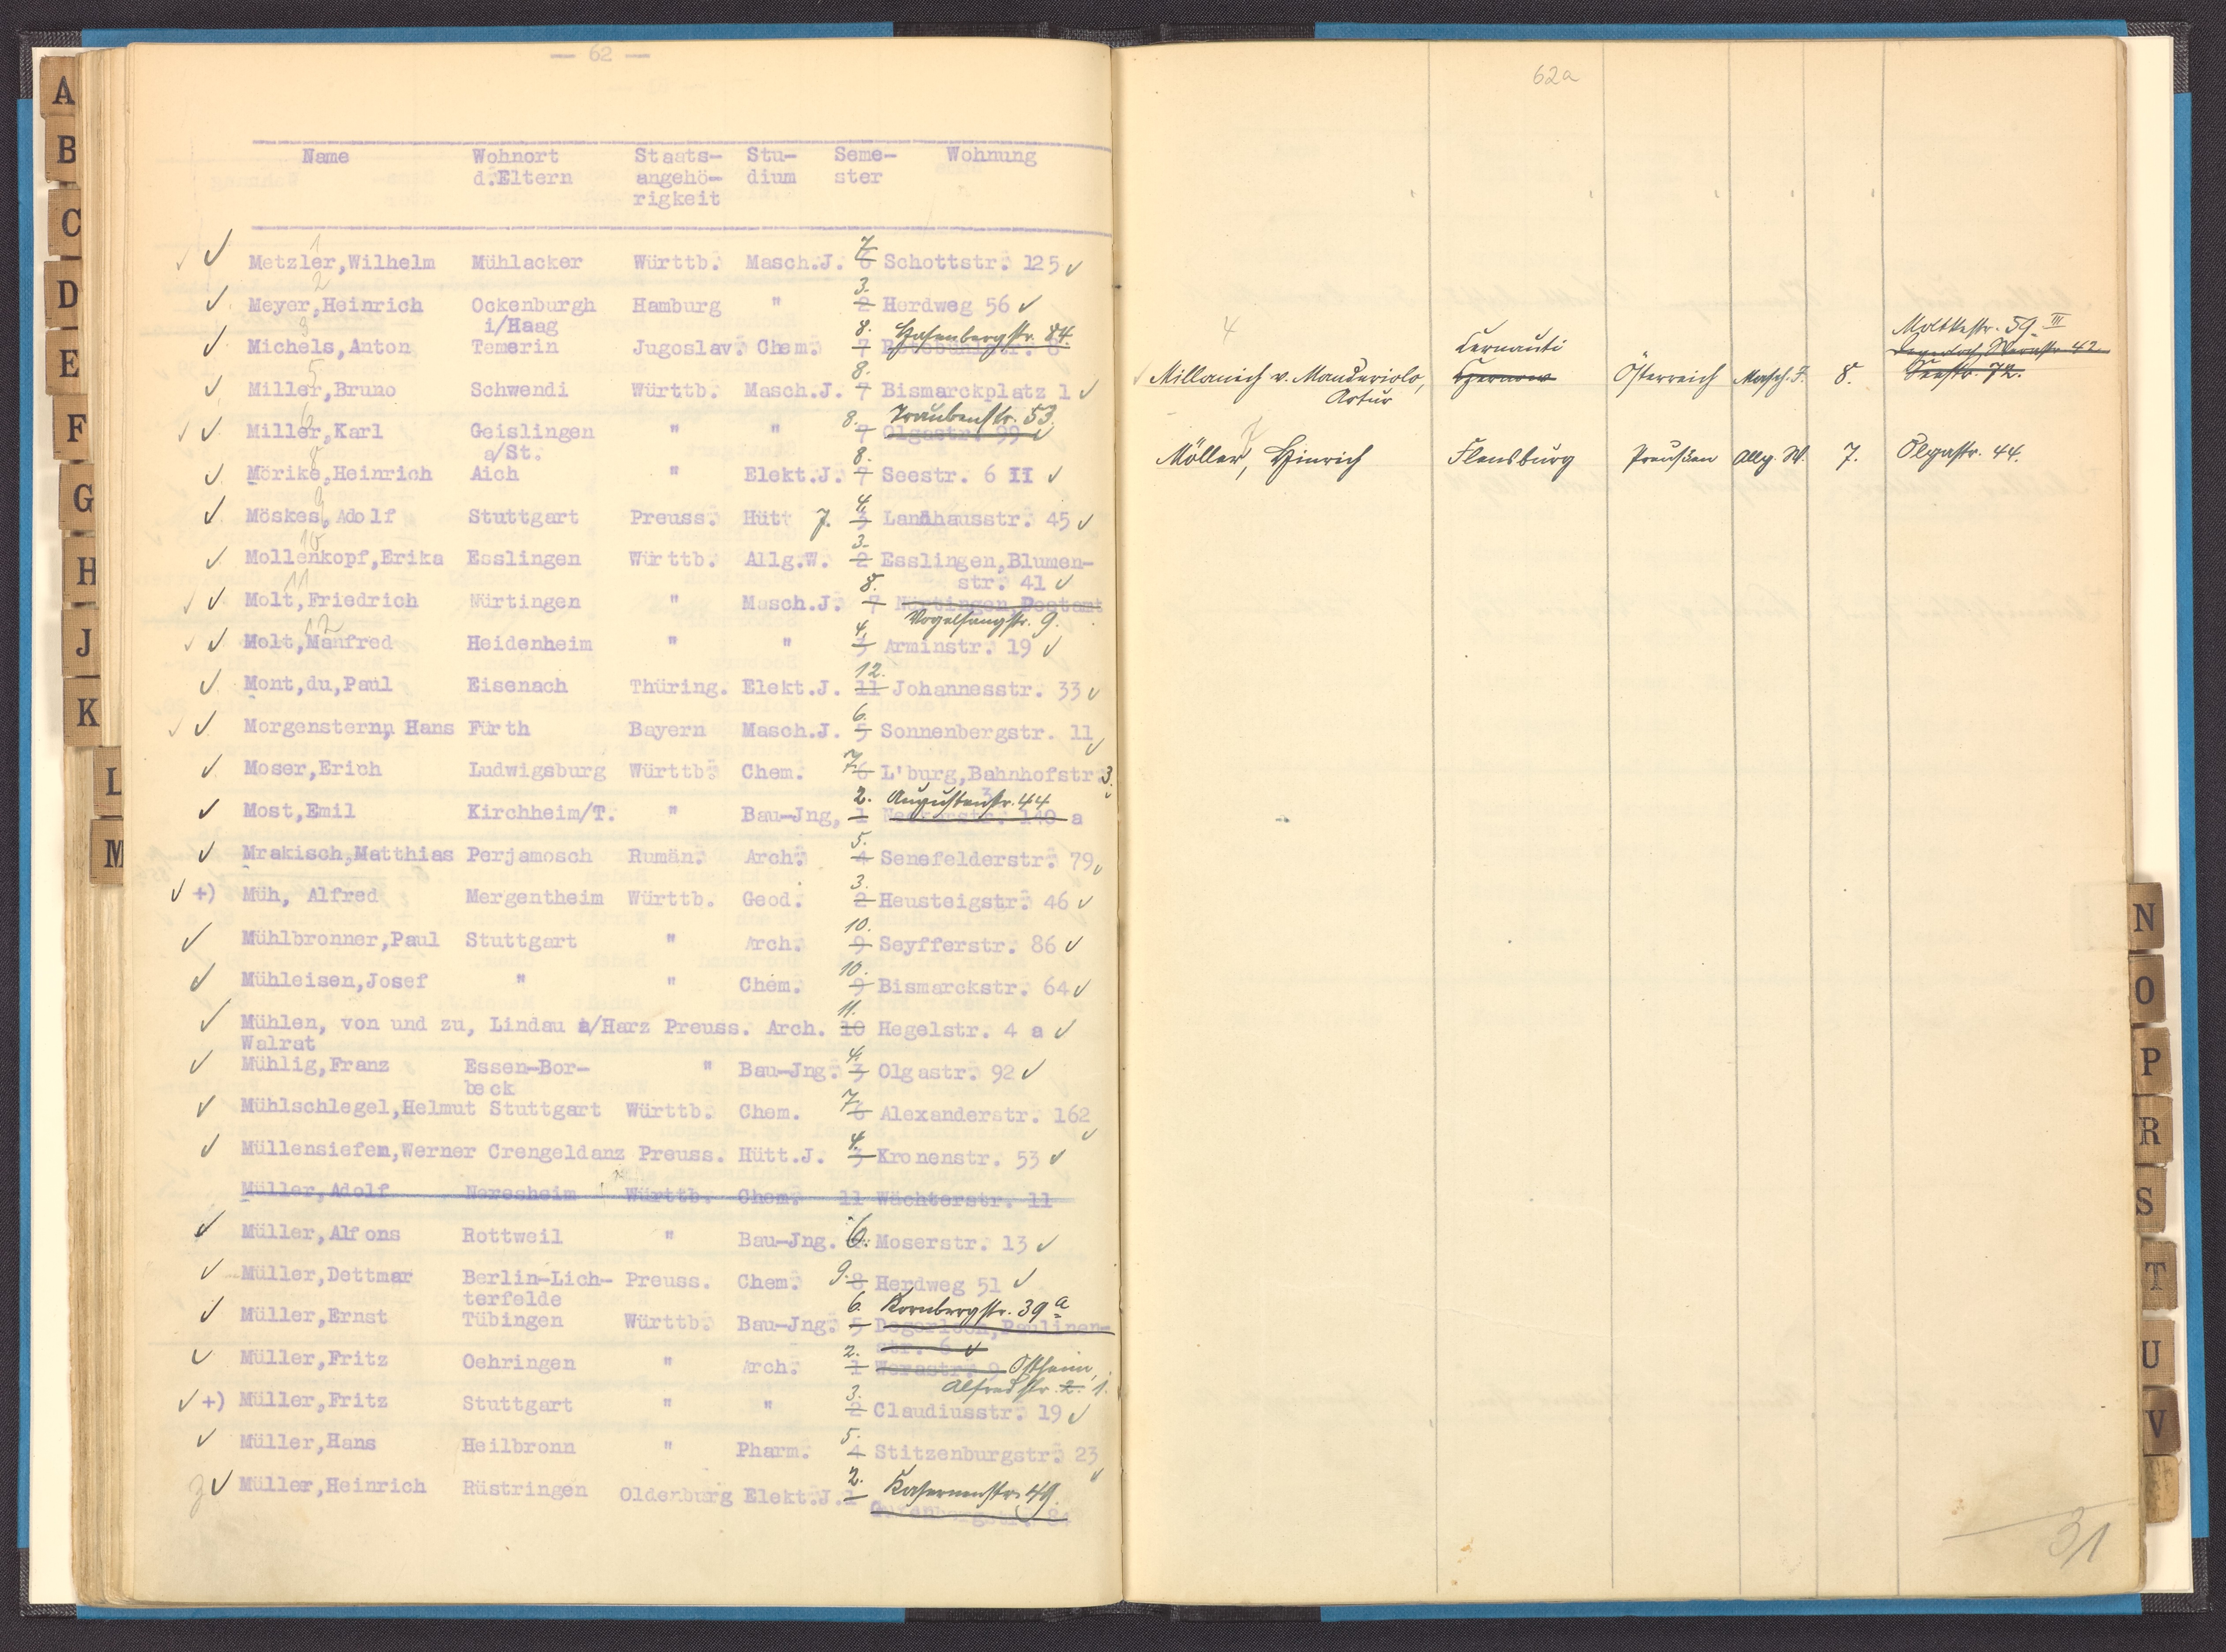 — 62 —
Name Wohnort Staats- Stu- Seme- Wohnung
d.Eltern angehö- dium ster
rigkeit
1
✓ ✓ Metzler,Wilhelm Mühlacker Württb. Masch.J. 7 6 Schottstr. 125 ✓
2
✓ Meyer,Heinrich Ockenburgh Hamburg " 3. 2 Herdweg 56 ✓
i/Haag
3
8. Hasenbergstr. 84.
✓ Michels,Anton Temerin Jugoslav. Chem. 7
5
✓ Miller,Bruno Schwendi Württb. Masch.J. 8. 7 Bismarckplatz 1 ✓
6
8. Traubenstr. 53.
✓ ✓ Miller,Karl Geislingen " " 7 Olgastr. 99 ✓
a/St.
8
✓ Mörike,Heinrich Aich " Elekt.J. 8. 7 Seestr. 6 II ✓
9
✓ Möskes,Adolf Stuttgart Preuss. Hütt J. 4. 3 Landhausstr. 45 ✓
10
✓ Mollenkopf,Erika Esslingen Württb. Allg.W. 3. 2 Esslingen,Blumen-
str. 41 ✓
11
✓ ✓ Molt,Friedrich Nürtingen " Masch.J. 8. 7 Nürtingen,Postamt
Vogelsangstr. 9.
12
✓ ✓ Molt,Manfred Heidenheim " " 4. 3 Arminstr. 19 ✓
✓ Mont,du,Paul Eisenach Thüring. Elekt.J. 12. 11 Johannesstr. 33 ✓
✓ ✓ Morgenstern, Hans Fürth Bayern Masch.J. 6. 5 Sonnenbergstr. 11 ✓
✓ Moser,Erich Ludwigsburg Württb. Chem. 7. 6 L'burg,Bahnhofstr. 3. ✓
3
2. Augustenstr. 44
✓ Most,Emil Kirchheim/T. " Bau-Jng, 1 Neckarstr. 140 a
✓ Mrakisch,Matthias Perjamosch Rumän. Arch. 5. 4 Senefelderstr. 79 ✓
✓ +) Müh, Alfred Mergentheim Württb. Geod. 3. 2 Heusteigstr. 46 ✓
✓ Mühlbronner,Paul Stuttgart " Arch. 10. 9 Seyfferstr. 86 ✓
✓ Mühleisen,Josef " " Chem. 10. 9 Bismarckstr. 64 ✓
✓ Mühlen, von und zu, Lindau a/Harz Preuss. Arch. 11. 10 Hegelstr. 4 a ✓
Walrat
✓ Mühlig,Franz Essen-Bor- " Bau-Jng. 4. 3 Olgastr. 92 ✓
beck
✓ Mühlschlegel,Helmut Stuttgart Württb. Chem. 7. 6 Alexanderstr. 162 ✓
✓ Müllensiefen,Werner Crengeldanz Preuss. Hütt.J. 4. 3 Kronenstr. 53 ✓
Müller,Adolf Neresheim Württb. Chem. 11 Wächterstr. 11
✓ Müller,Alfons Rottweil " Bau-Jng. 6. Moserstr. 13 ✓
✓ Müller,Dettmar Berlin-Lich- Preuss. Chem. 9. 8 Herdweg 51 ✓
terfelde
6. Kornbergstr. 39 a
✓ Müller,Ernst Tübingen Württb. Bau-Jng. 5 Degerloch,Paulinen-
str. 6 ✓
✓ Müller,Fritz Oehringen " Arch. 2. 1 Werastr. 9 Ostheim,
Alfredstr. 2. 1.
✓ +) Müller,Fritz Stuttgart " " 3. 2 Claudiusstr. 19 ✓
✓ Müller,Hans Heilbronn " Pharm. 5. 4 Stitzenburgstr. 23 ✓
✓ Müller,Heinrich Rüstringen Oldenburg Elekt.J. 2. 1 Kasernenstr. 49.
A
B
C
D
E
F
G
H
J
K
L
M
62a
4
Moltkestr. 59. III
Cernauti
✓ Millanich v. Manderiolo, Österreich Masch. J. 8. Seestr. 72.
Artur
7
Möller, Hinrich Flensburg Preußen Allg. W. 7. Olgastr. 44.
31
N
O
P
R
S
T
U
V